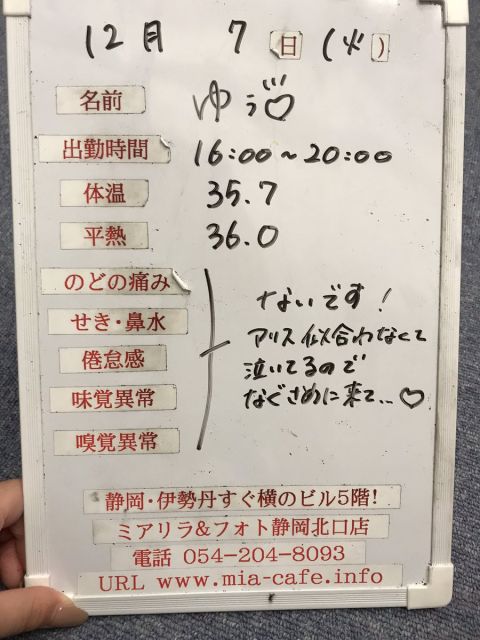 12月 7日(火)
名前 ゆう♡
出勤時間 16:00~20:00
体温 35.7
平熱 36.0
のどの痛み
せき・鼻水
倦怠感
味覚異常
嗅覚異常
ないです!
アリス似合わなくて
泣いてるので
なぐさめに来て...♡
静岡・伊勢丹すぐ横のビル5階!
ミアリラ&フォト静岡北口店
電話 054-204-8093
URL www.mia-cafe.info